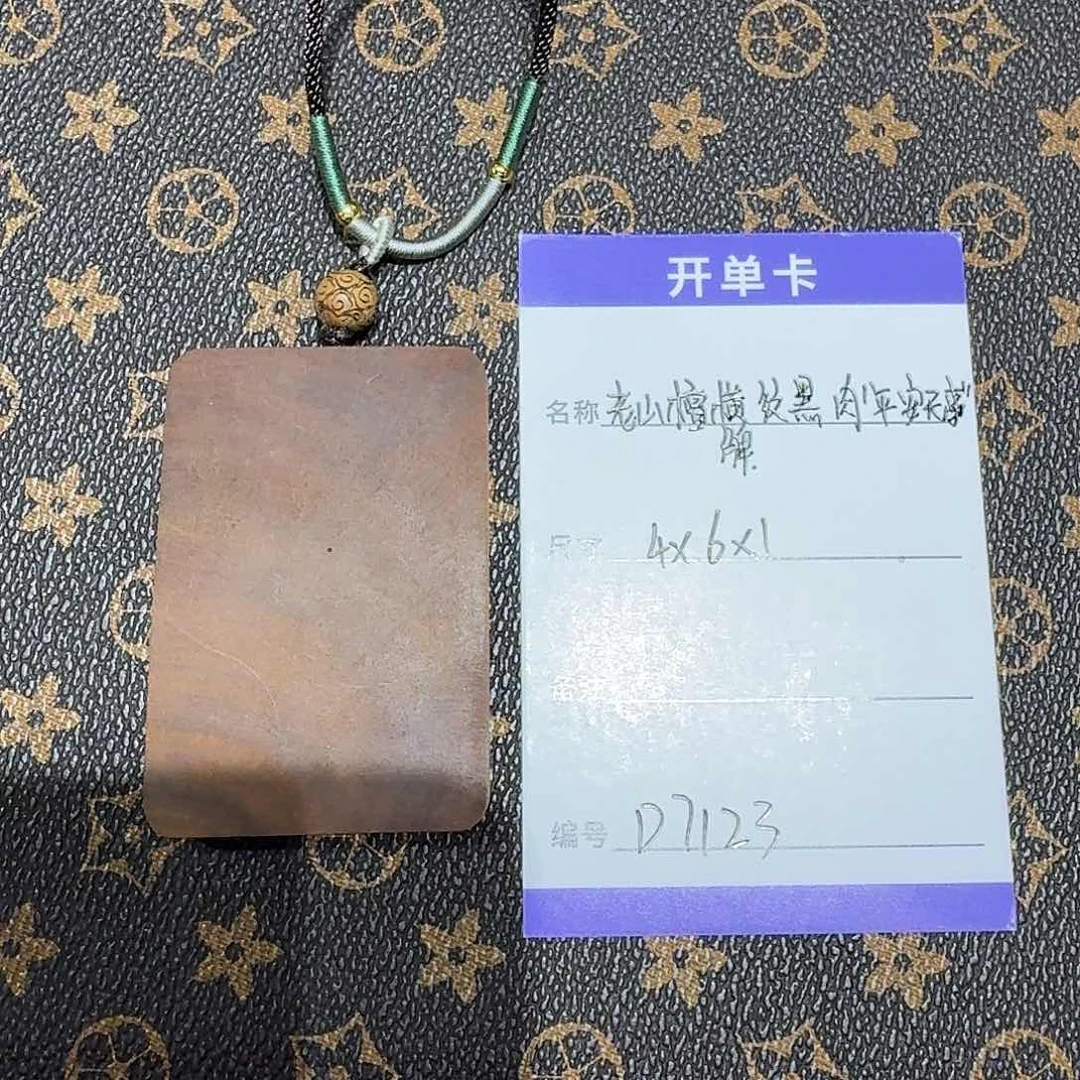 开单卡
名称 老山檀黄纹黑肉"平安无事"
牌
尺寸 4x6x1
编号 D7123